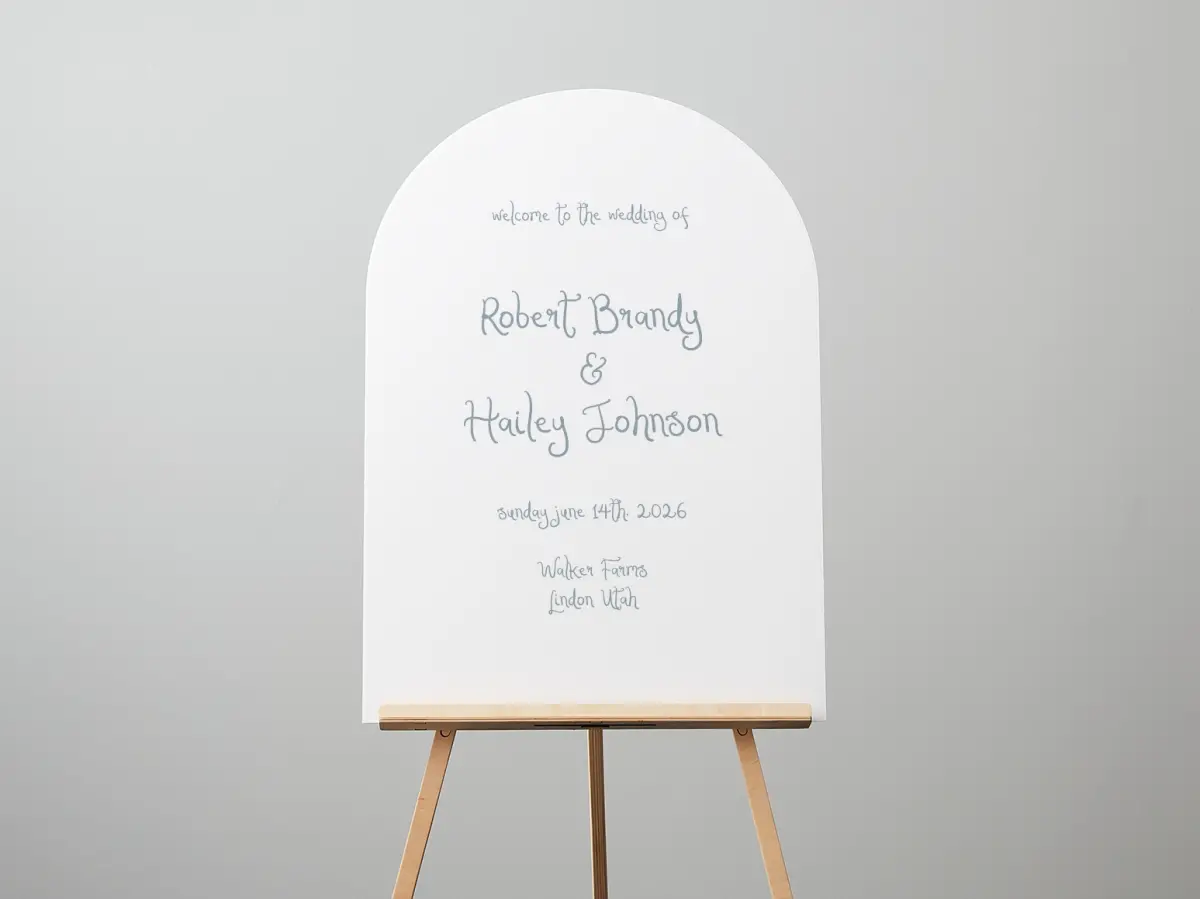 welcome to the wedding of
Robert Brandy
&
Hailey Johnson
sunday june 14th. 2026
Walker Farms
Lindon Utah